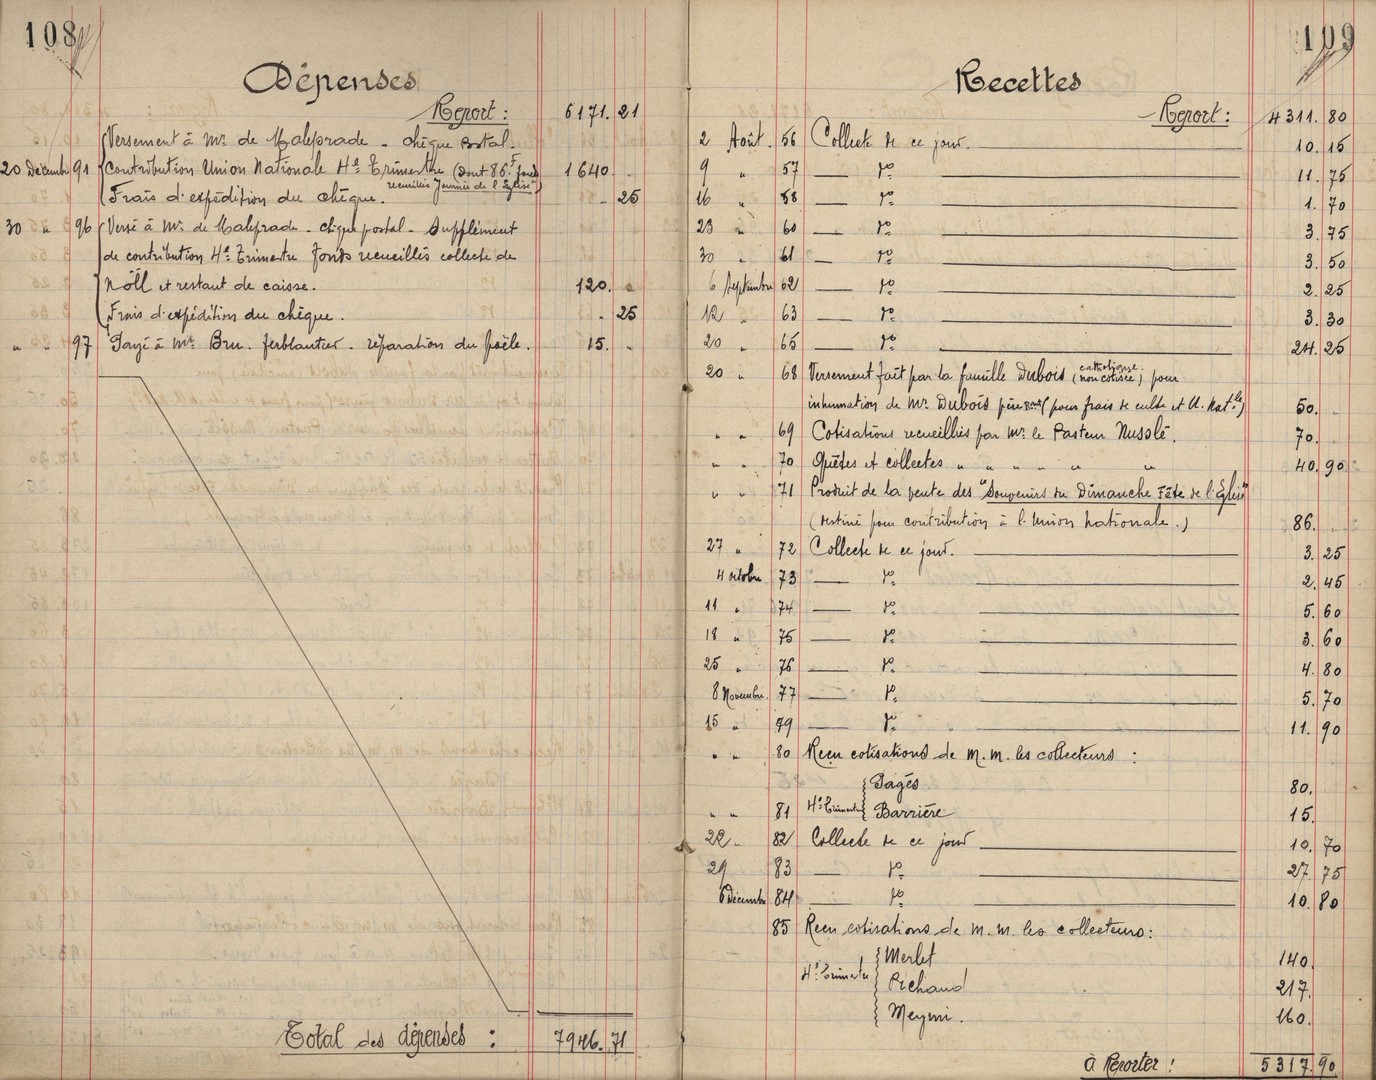 108
Dépenses
Report : 6171. 21
Versement à Mr. de Maleprade - chèque postal.
20 Décembre 91 Contribution Union Nationale 4e Trimestre (dont 86.F fonds 1640. .
recueillis Journée de l'Eglise)
Frais d'expédition du chèque. . 25
30 " 96 Versé à Mr. de Maleprade - chèque postal - Supplément
de contribution 4e Trimestre fonds recueillis collecte de
Nöll et restant de caisse. 120. .
Frais d'expédition du chèque. . 25
" " 97 Payé à Mr. Bru. ferblantier. réparation du poêle. 15. .
Total des dépenses : 7946. 71
109
Recettes
Report : 4311. 80
2 Août. 56 Collecte de ce jour. 10. 15
9 " 57 — do 11. 75
16 " 58 — do 1. 70
23 " 60 — do 3. 75
30 " 61 — do 3. 50
6 Septembre 62 — do 2. 25
12 " 63 — do 3. 30
20 " 65 — do 24. 25
20 " 68 Versement fait par la famille Dubois (catholique non cotisée) pour
inhumation de Mr. Dubois père (pour frais de culte et U. Natle) 50. .
" " 69 Cotisations recueillies par Mr. le Pasteur Nusslé. 70. .
" " 70 Quêtes et collectes " " " " " 40. 90
" " 71 Produit de la vente des "Souvenirs du Dimanche Fête de l'Eglise"
(destiné pour contribution à l'Union Nationale.) 86. .
27 " 72 Collecte de ce jour. 3. 25
4 octobre 73 — do 2. 45
11 " 74 — do 5. 60
18 " 75 — do 3. 60
25 " 76 — do 4. 80
8 Novembre. 77 — do 5. 70
15 " 79 — do 11. 90
" " 80 Reçu cotisations de M.M. les collecteurs :
Pagés 80.
" " 81 4e Trimestre Barrière 15.
22 " 82 Collecte de ce jour 10. 70
29 83 — do 27. 75
6 Décembre 84 — do 10. 80
85 Reçu cotisations de M.M. les collecteurs :
Merlet 140.
4e Trimestre Pichaud 217.
Meymi. 160.
à Reporter ! 5317. 90